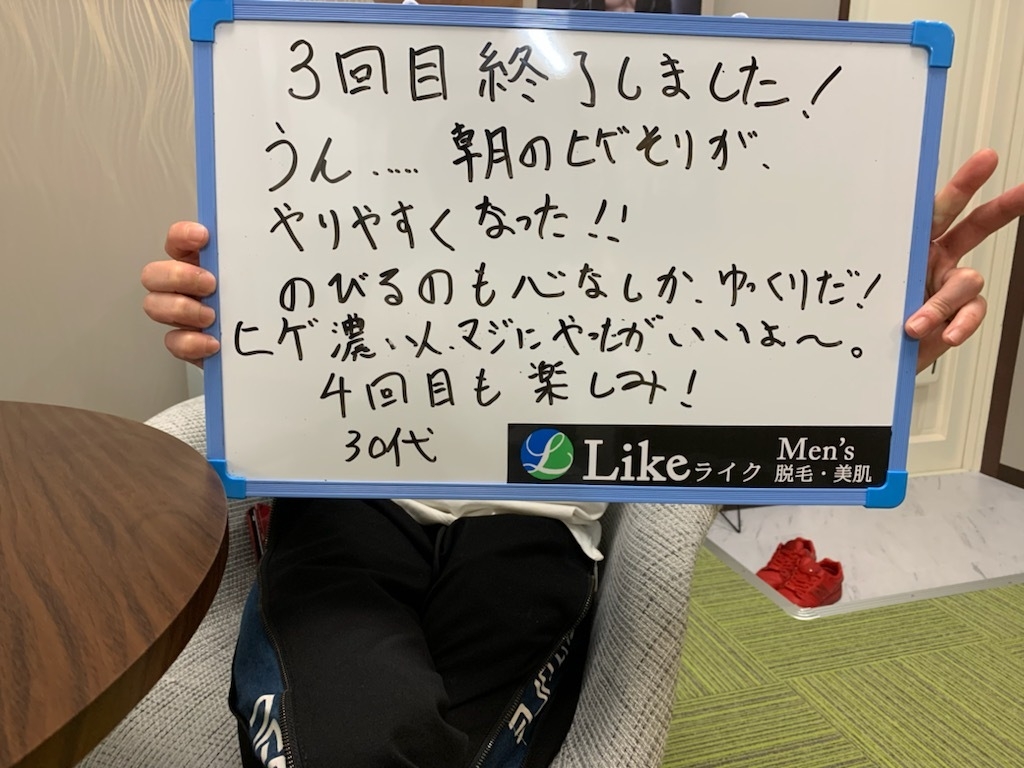 3回目 終了しました!
うん..... 朝のヒゲそりが、
やりやすく なった!!
のびるのも心なしか、ゆっくりだ!
ヒゲ 濃い人、マジにやったがいいよ〜。
4回目も 楽しみ!
30代
Like ライク Men's 脱毛・美肌